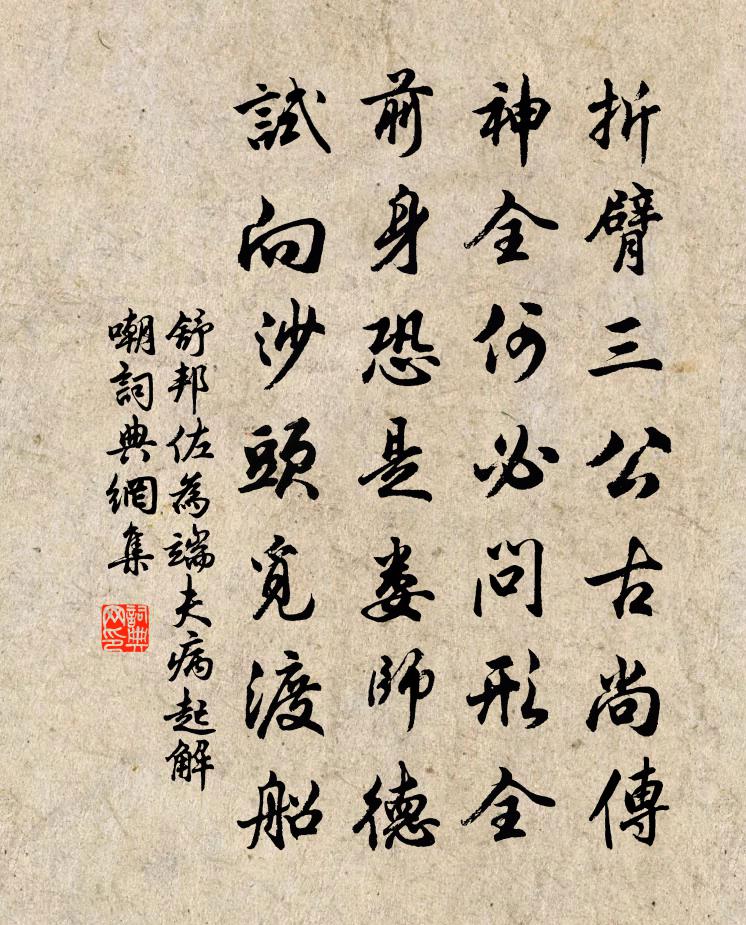 折臂三公古尚傳
神全何必問形全
前身恐是婁師德
試向沙頭覓渡船
舒邦佐為端夫病起解
嘲詞典網集
詞典
网印